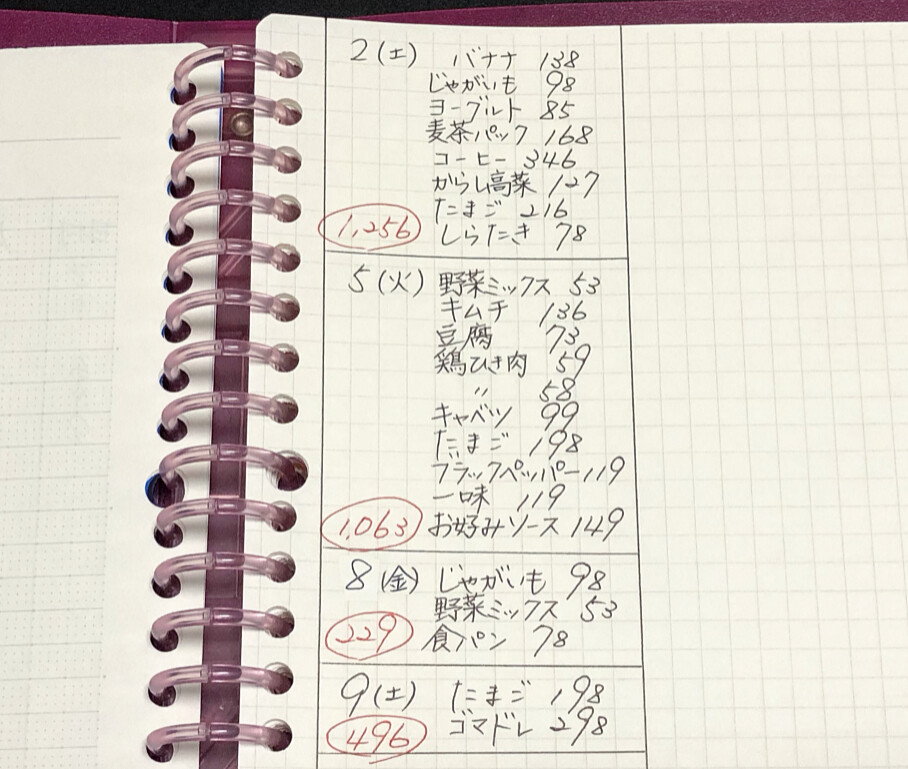 2(土) バナナ 138
じゃがいも 98
ヨーグルト 85
麦茶パック 168
コーヒー 346
からし高菜 127
たまご 216
1,256 しらたき 78
5(火) 野菜ミックス 53
キムチ 136
豆腐 73
鶏ひき肉 59
〃 58
キャベツ 99
たまご 198
ブラックペッパー 119
一味 119
1,063 お好みソース 149
8(金) じゃがいも 98
野菜ミックス 53
229 食パン 78
9(土) たまご 198
496 ゴマドレ 298